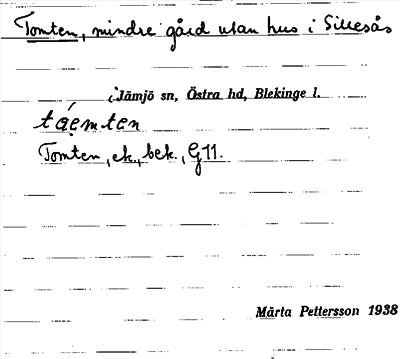 Tomten, mindre gård utan hus i Sillesås
i Jämjö sn, Östra hd, Blekinge l.
táemten
Tomten, ek., bek., G 11.
Märta Pettersson 1938